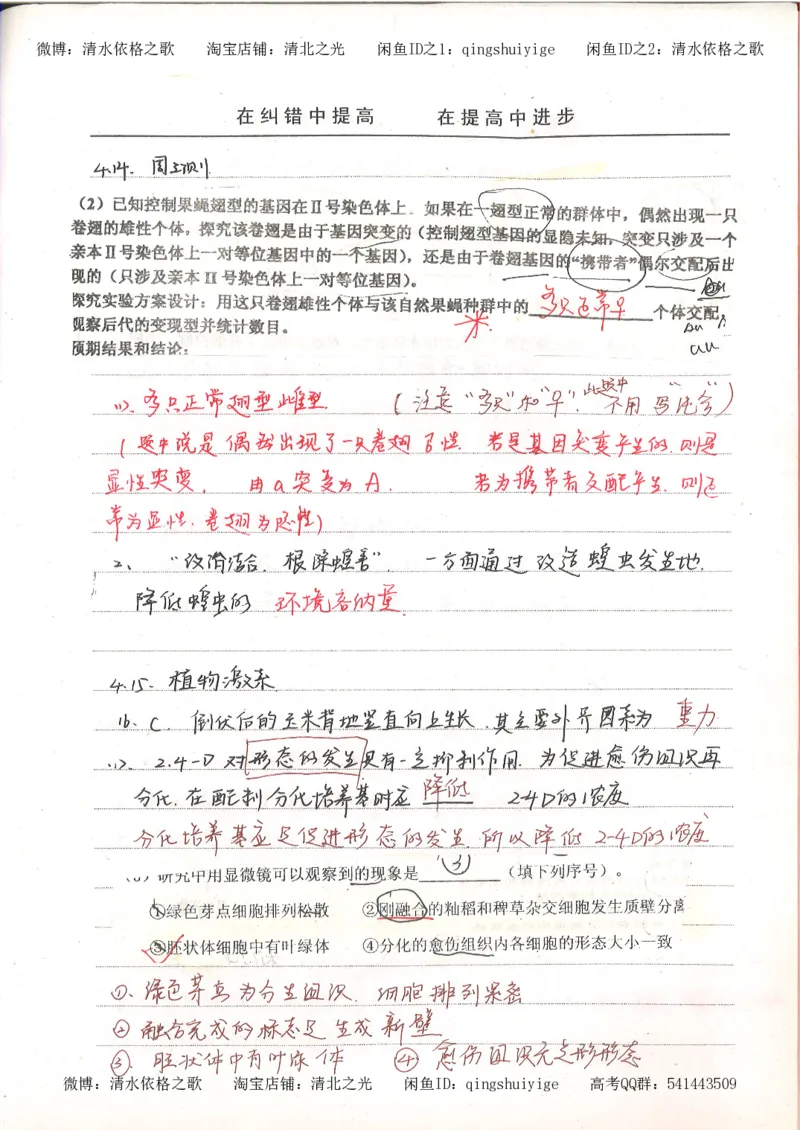 微博：清水依格之歌 淘宝店铺：清北之光 闲鱼ID之1：qingshuiyige 闲鱼ID之2：清水依格之歌
在纠错中提高 在提高中进步
4.14. 周三顺
（2）已知控制果蝇翅型的基因在Ⅱ号染色体上。如果在一翅型正常的群体中，偶然出现一只
卷翅的雄性个体，探究该卷翅是由于基因突变的（控制翅型基因的显隐未知，突变只涉及一个
亲本Ⅱ号染色体上一对等位基因中的一个基因），还是由于卷翅基因的“携带者”偶尔交配后出
现的（只涉及亲本Ⅱ号染色体上一对等位基因）。
探究实验方案设计：用这只卷翅雄性个体与该自然果蝇种群中的 多只正常♀ 个体交配，
观察后代的变现型并统计数目。
预期结果和结论：
(1). 多只正常翅型雌型 （注意“多只”和“♀”. 此题中不用写“纯合”）
（题中说是偶然出现了一只卷翅♂性. 若是基因突变产生的, 则是
显性突变, 由a突变为A. 若为携带者交配产生, 则正
常为显性. 卷翅为隐性）
2、“改治结合, 根除蝗害”. 一方面通过改造蝗虫发生地,
降低蝗虫的 环境容纳量
4.15. 植物激素
16. C. 倒伏后的玉米背地竖直向上生长, 其主要外界因素为 重力
2.4-D对形态的发生具有一定抑制作用. 为促进愈伤组织再
分化, 在配制分化培养基时应 降低 2-4D的浓度
分化培养基应是促进形态的发生, 所以降低2-4D的浓度
研究中用显微镜可以观察到的现象是 (3) （填下列序号）。
①绿色芽点细胞排列松散 ②刚融合的籼稻和稗草杂交细胞发生质壁分离
③胚状体细胞中有叶绿体 ④分化的愈伤组织内各细胞的形态大小一致
①. 绿色芽点为分生组织, 细胞排列紧密
② 融合完成的标志是生成新壁
③. 胚状体中有叶绿体 ④ 愈伤组织无定形形态
微博：清水依格之歌 淘宝店铺：清北之光 闲鱼ID：qingshuiyige 高考QQ群：541443509